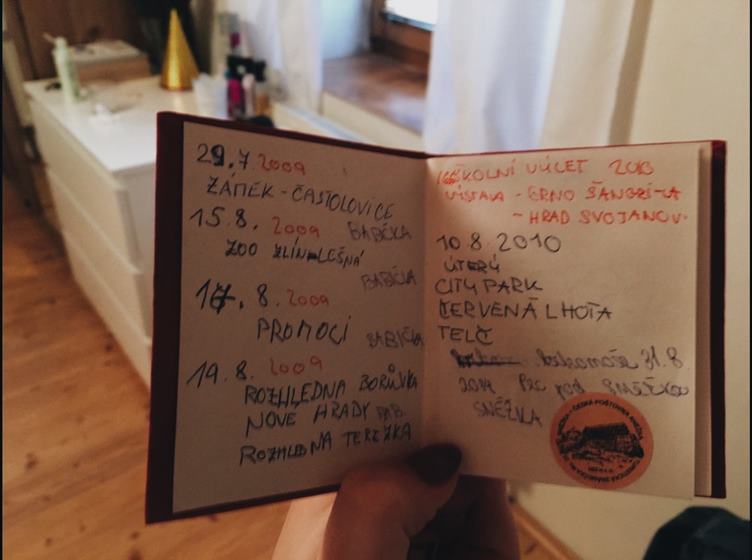 29.7.2009
ZÁMEK - ČASTOLOVICE
15.8. 2009 BABIČKA
ZOO ZLÍN-LEŠNÁ
BABIČKA
17. 8. 2009
PROMOCI
BABIČKA
19.8. 2009
ROZHLEDNA BORŮVKA
NOVÉ HRADY
ROZHLEDNA TEREZKA
ŠKOLNÍ VÝLET 2010
VÝSTAVA - BRNO ŠANGRI-LA
- HRAD SVOJANOV
10.8.2010
ÚTERÝ
CITY PARK
ČERVENÁ LHOTA
TELČ
31.8.
2014 Pec pod SNĚŽKOU
SNĚŽKA
ČESKÁ POŠTOVNA